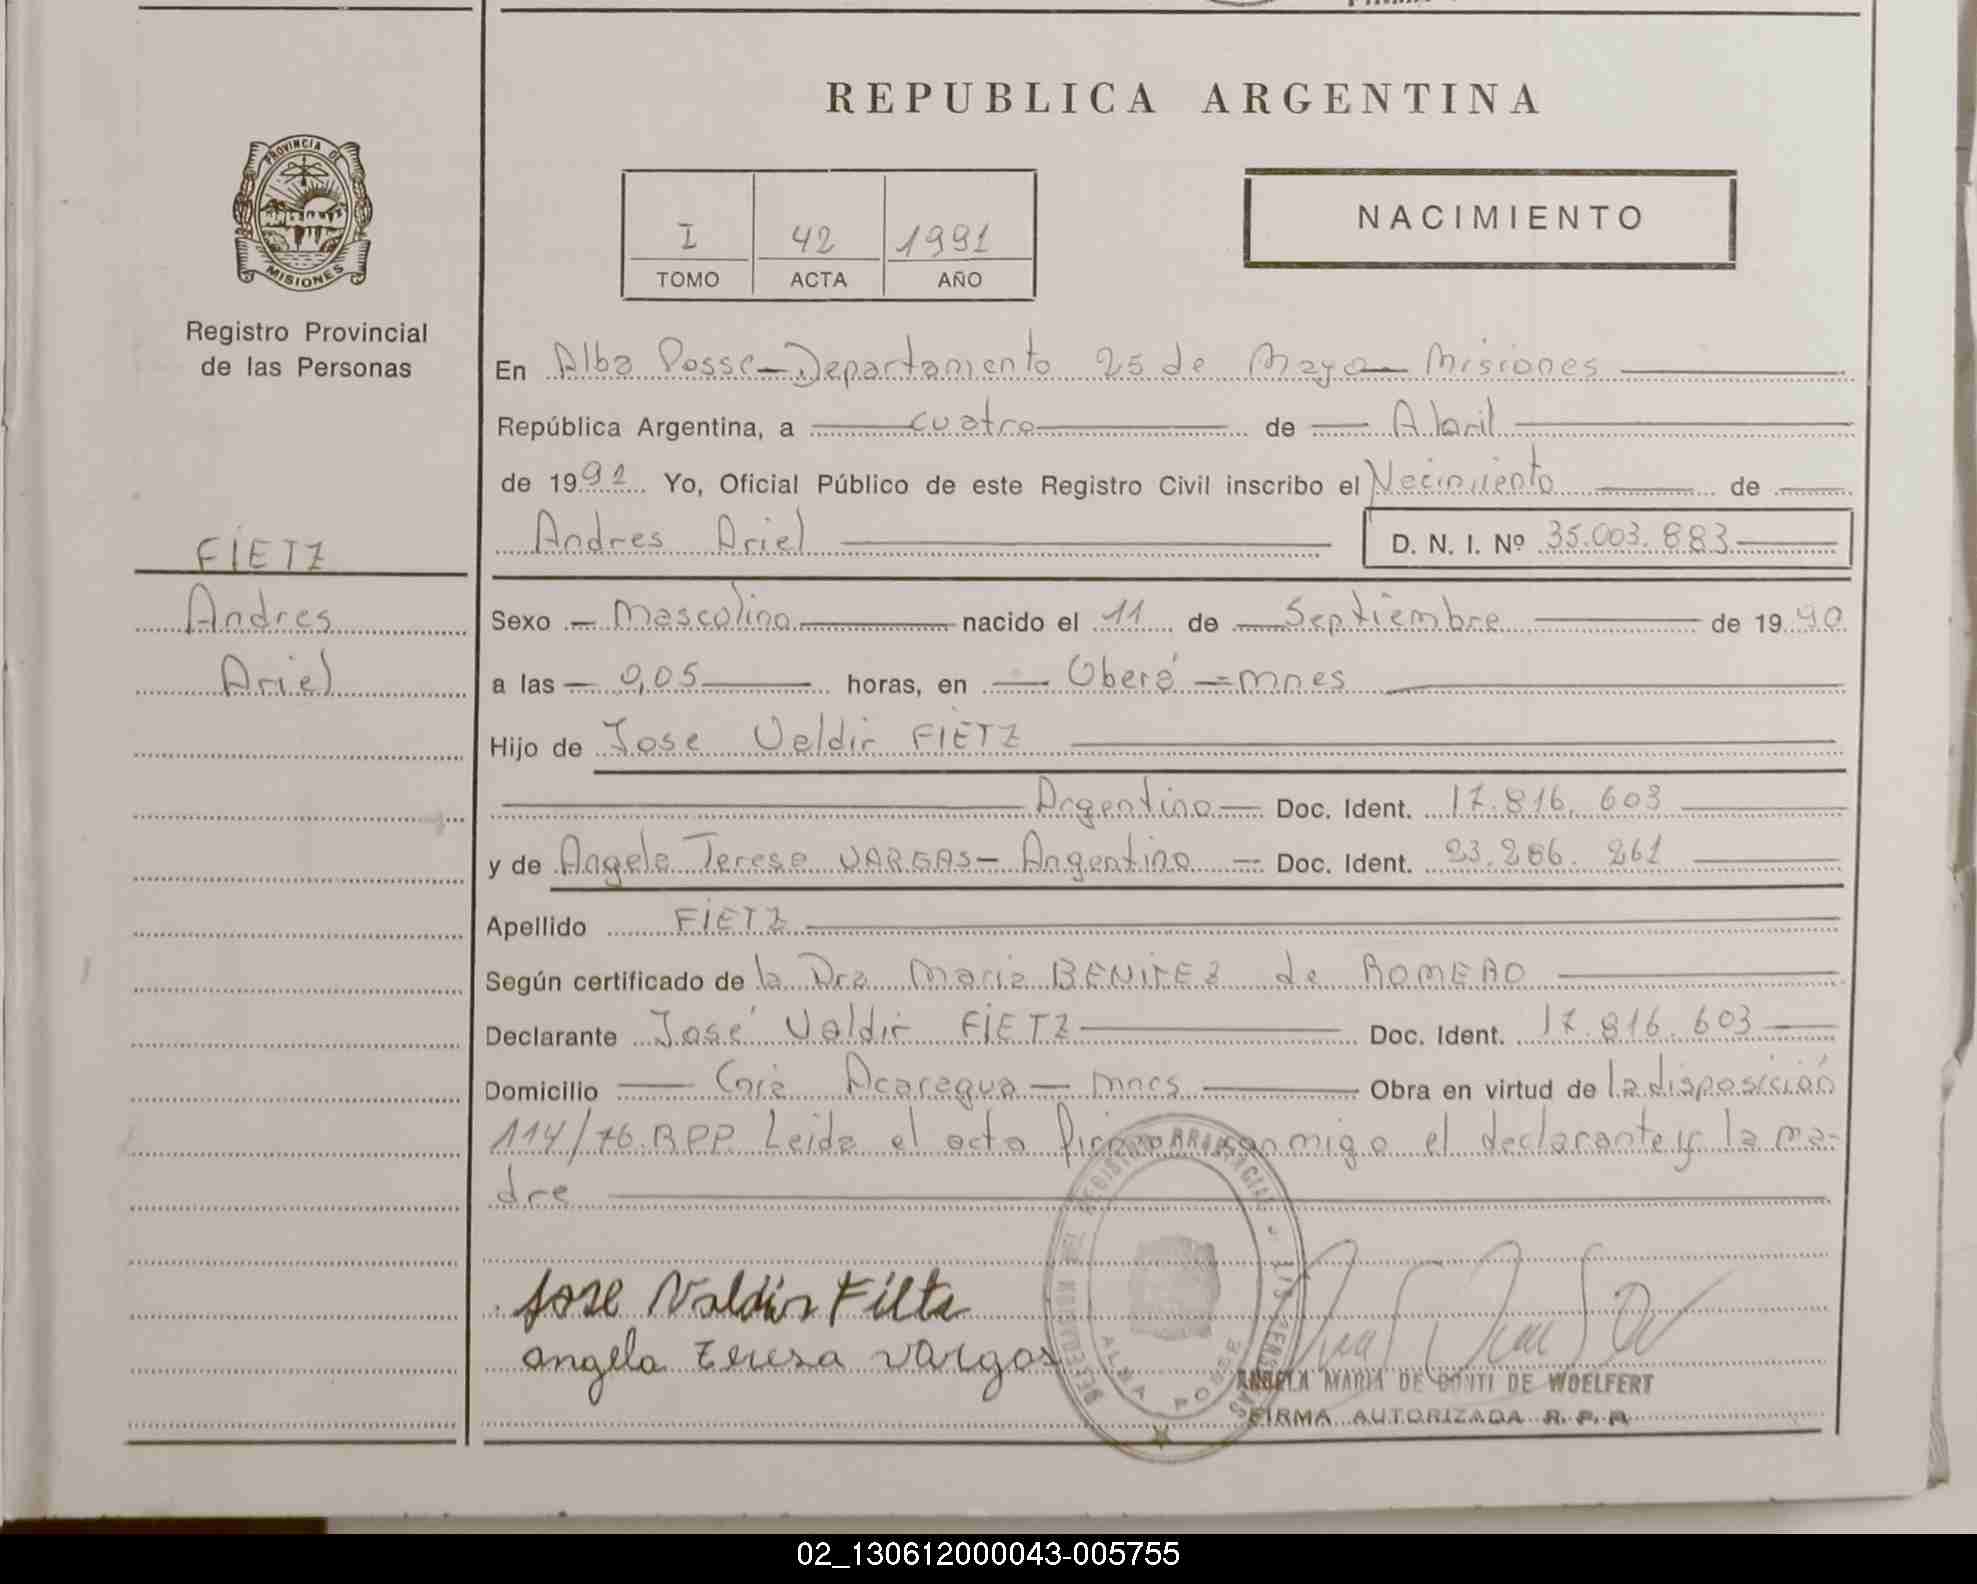 REPUBLICA ARGENTINA
PROVINCIA DE
MISIONES
Registro Provincial
de las Personas
I 42 1991
TOMO ACTA AÑO
NACIMIENTO
En Alba Posse - Departamento 25 de Mayo - Misiones
República Argentina, a cuatro de Abril
de 1991 Yo, Oficial Público de este Registro Civil inscribo el Nacimiento de
Andres Ariel D. N. I. Nº 35.003.883
FIETZ
Andres
Ariel
Sexo - Mascolino nacido el 11 de Septiembre de 1990
a las 0,05 horas, en Oberá - mnes
Hijo de Jose Valdir FIETZ
Argentino Doc. Ident. 17.816.603
y de Angela Teresa VARGAS - Argentina Doc. Ident. 23.286.261
Apellido FIETZ
Según certificado de la Dra Maria BENITEZ de ROMERO
Declarante José Valdir FIETZ Doc. Ident. 17.816.603
Domicilio Cnia Acaragua - mnes Obra en virtud de la disposición
114/76.RPP. Leida el acta firman conmigo el declarante y la ma-
dre
Jose Valdir Fietz
angela Teresa vargas
REGISTRO PROVINCIAL
ALBA POSSE
ANGELA MARIA DE CONTI DE WOELFERT
FIRMA AUTORIZADA R. P. P.
02_130612000043-005755